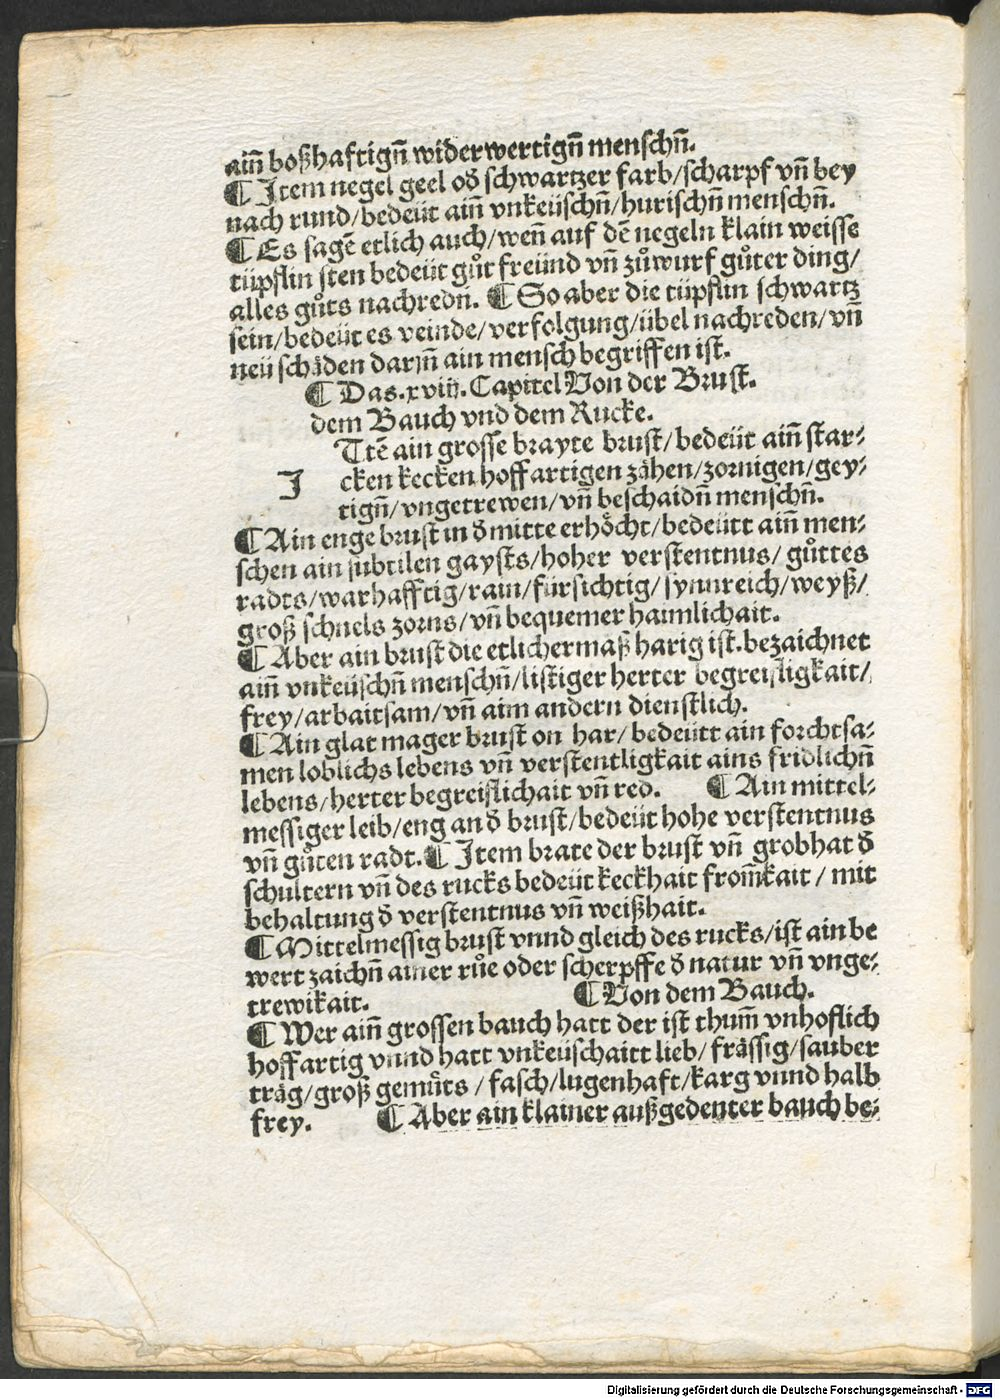 ain̄ boßhaftign̄ widerwertign̄ menschn̄.
¶ Item negel geel od̄ schwartzer farb/scharpf vn̄ bey
nach rund/bedeüt ain̄ vnkeüschn̄/hurischn̄ menschn̄.
¶ Es sagē etlich auch/wen̄ auf dē negeln klain weisse
tüpflin sten bedeüt gůt freünd vn̄ zůwurf gůter ding/
alles gůts nachredn. ¶ So aber die tüpflin schwartz
sein/bedeüt es veinde/verfolgung/übel nachreden/vn̄
neü schäden darjn̄ ain mensch begriffen ist.
¶ Das.xviij.Capitel Von der Brust.
dem Bauch vnd dem Rucke.
I Ttē ain grosse brayte brust/bedeüt ain̄ star⸗
cken kecken hoffartigen zähen/zornigen/gey⸗
tign̄/vngetrewen/vn̄ beschaidn̄ menschn̄.
¶ Ain enge brust in d̄ mitte erhöcht/bedeütt ain̄ men⸗
schen ain subtilen gaysts/hoher verstentnus/gůttes
radts/warhafftig/rain/fürsichtig/synnreich/weyß/
groß schnels zorns/vn̄ bequemer haimlichait.
¶ Aber ain brust die etlichermaß harig ist.bezaichnet
ain̄ vnkeüschn̄ menschn̄/listiger herter begreifligkait/
frey/arbaitsam/vn̄ aim andern dienstlich.
¶ Ain glat mager brust on har/bedeütt ain forchtsa⸗
men loblichs lebens vn̄ verstentligkait ains fridlichn̄
lebens/herter begreiflichait vn̄ red. ¶ Ain mittel⸗
messiger leib/eng an d̄ brust/bedeüt hohe verstentnus
vn̄ gůten radt.¶ Item brate der brust vn̄ grobhat d̄
schultern vn̄ des rucks bedeüt keckhait from̄kait/mit
behaltung d̄ verstentnus vn̄ weißhait.
¶ Mittelmessig brust vnnd gleich des rucks/ist ain be
wert zaichn̄ ainer růe oder scherpffe d̄ natur vn̄ vnge⸗
trewikait. ¶ Von dem Bauch.
¶ Wer ain̄ grossen bauch hatt der ist thum̄ vnhoflich
hoffartig vnnd hatt vnkeüschaitt lieb/frässig/sauber
träg/groß gemüts/fasch/lugenhaft/karg vnnd halb
frey. ¶ Aber ain klainer außgedenter bauch be⸗
Digitalisierung gefördert durch die Deutsche Forschungsgemeinschaft - DFG